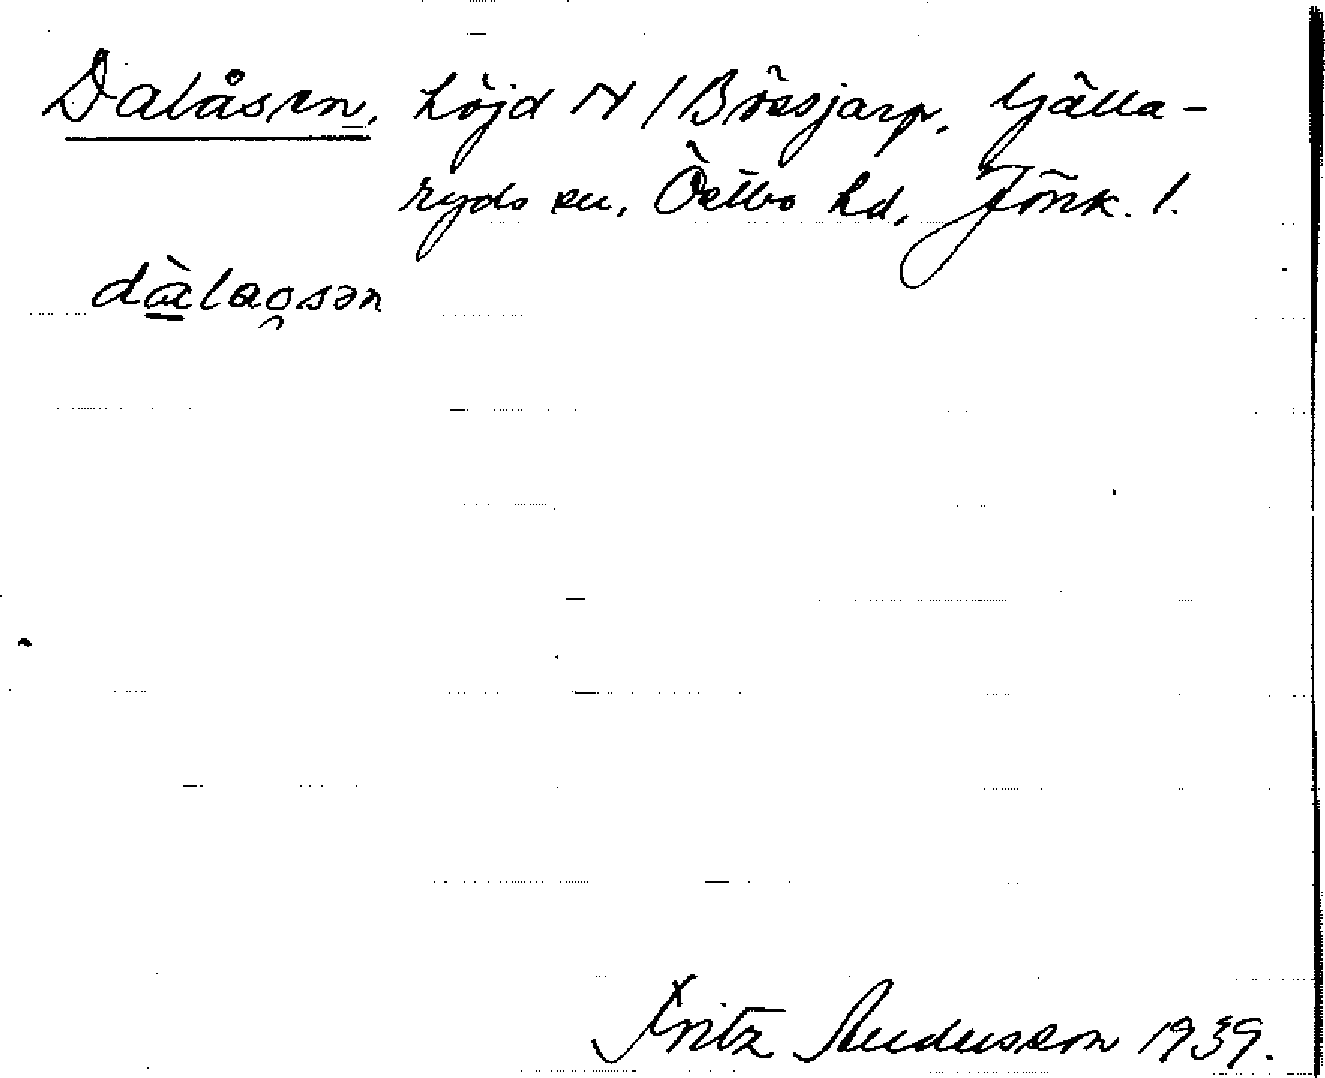 Dalåsen, höjd N/Bössjarp, Gälla-
ryds sn, Östbo hd, Jönk. l.
dàlaosən
Fritz Andersson 1939.